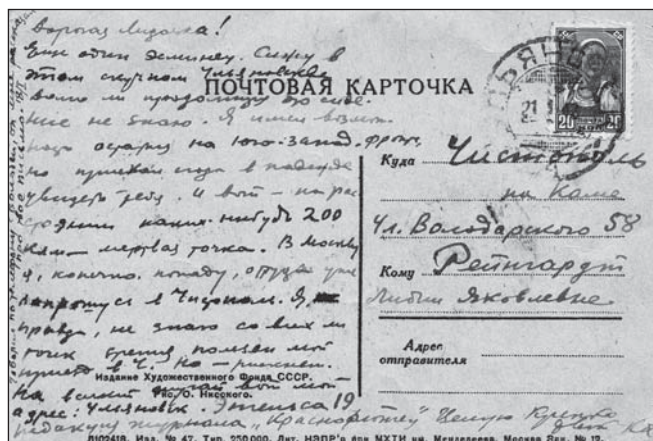 Дорогая Лидочка!
Еще один день. Сижу в
этом скучном Ульяновске
ПОЧТОВАЯ КАРТОЧКА
не знаю. Я имел возмож
на юго-запад. фронт
но приехал сюда в надежде
увидеть тебя. И вот – на рас
стоянии каких-нибудь 200
клм – мертвая точка. В Москву
я, конечно, попаду, оттуда уже
в Чистополь. Я,
правда, не знаю со всех ли
точек зрения полезен мой
приезд в Ч. Но – рискнем.
На всякий случай вот мой
адрес: Ульяновск. Энгельса 19
редакция журнала „Краснофлотец“ Целую крепко
20 20
Куда Чистополь
на Каме
Ул. Володарского 58
Кому Рейнгардт
Лидии Яковлевне
Адрес
отправителя
Издание Художественного Фонда СССР.
Рис. О. Нисского.
Изд. № 47. Тир. 250.000. Лит. НЭПР'а при МХТИ им. Менделеева. Москва Зак. № 12.